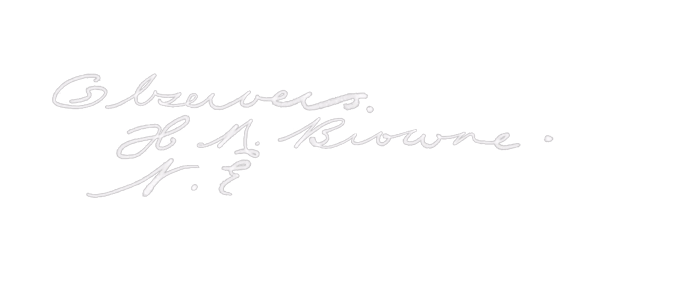 Observers.
H. N. Browne.
N. E